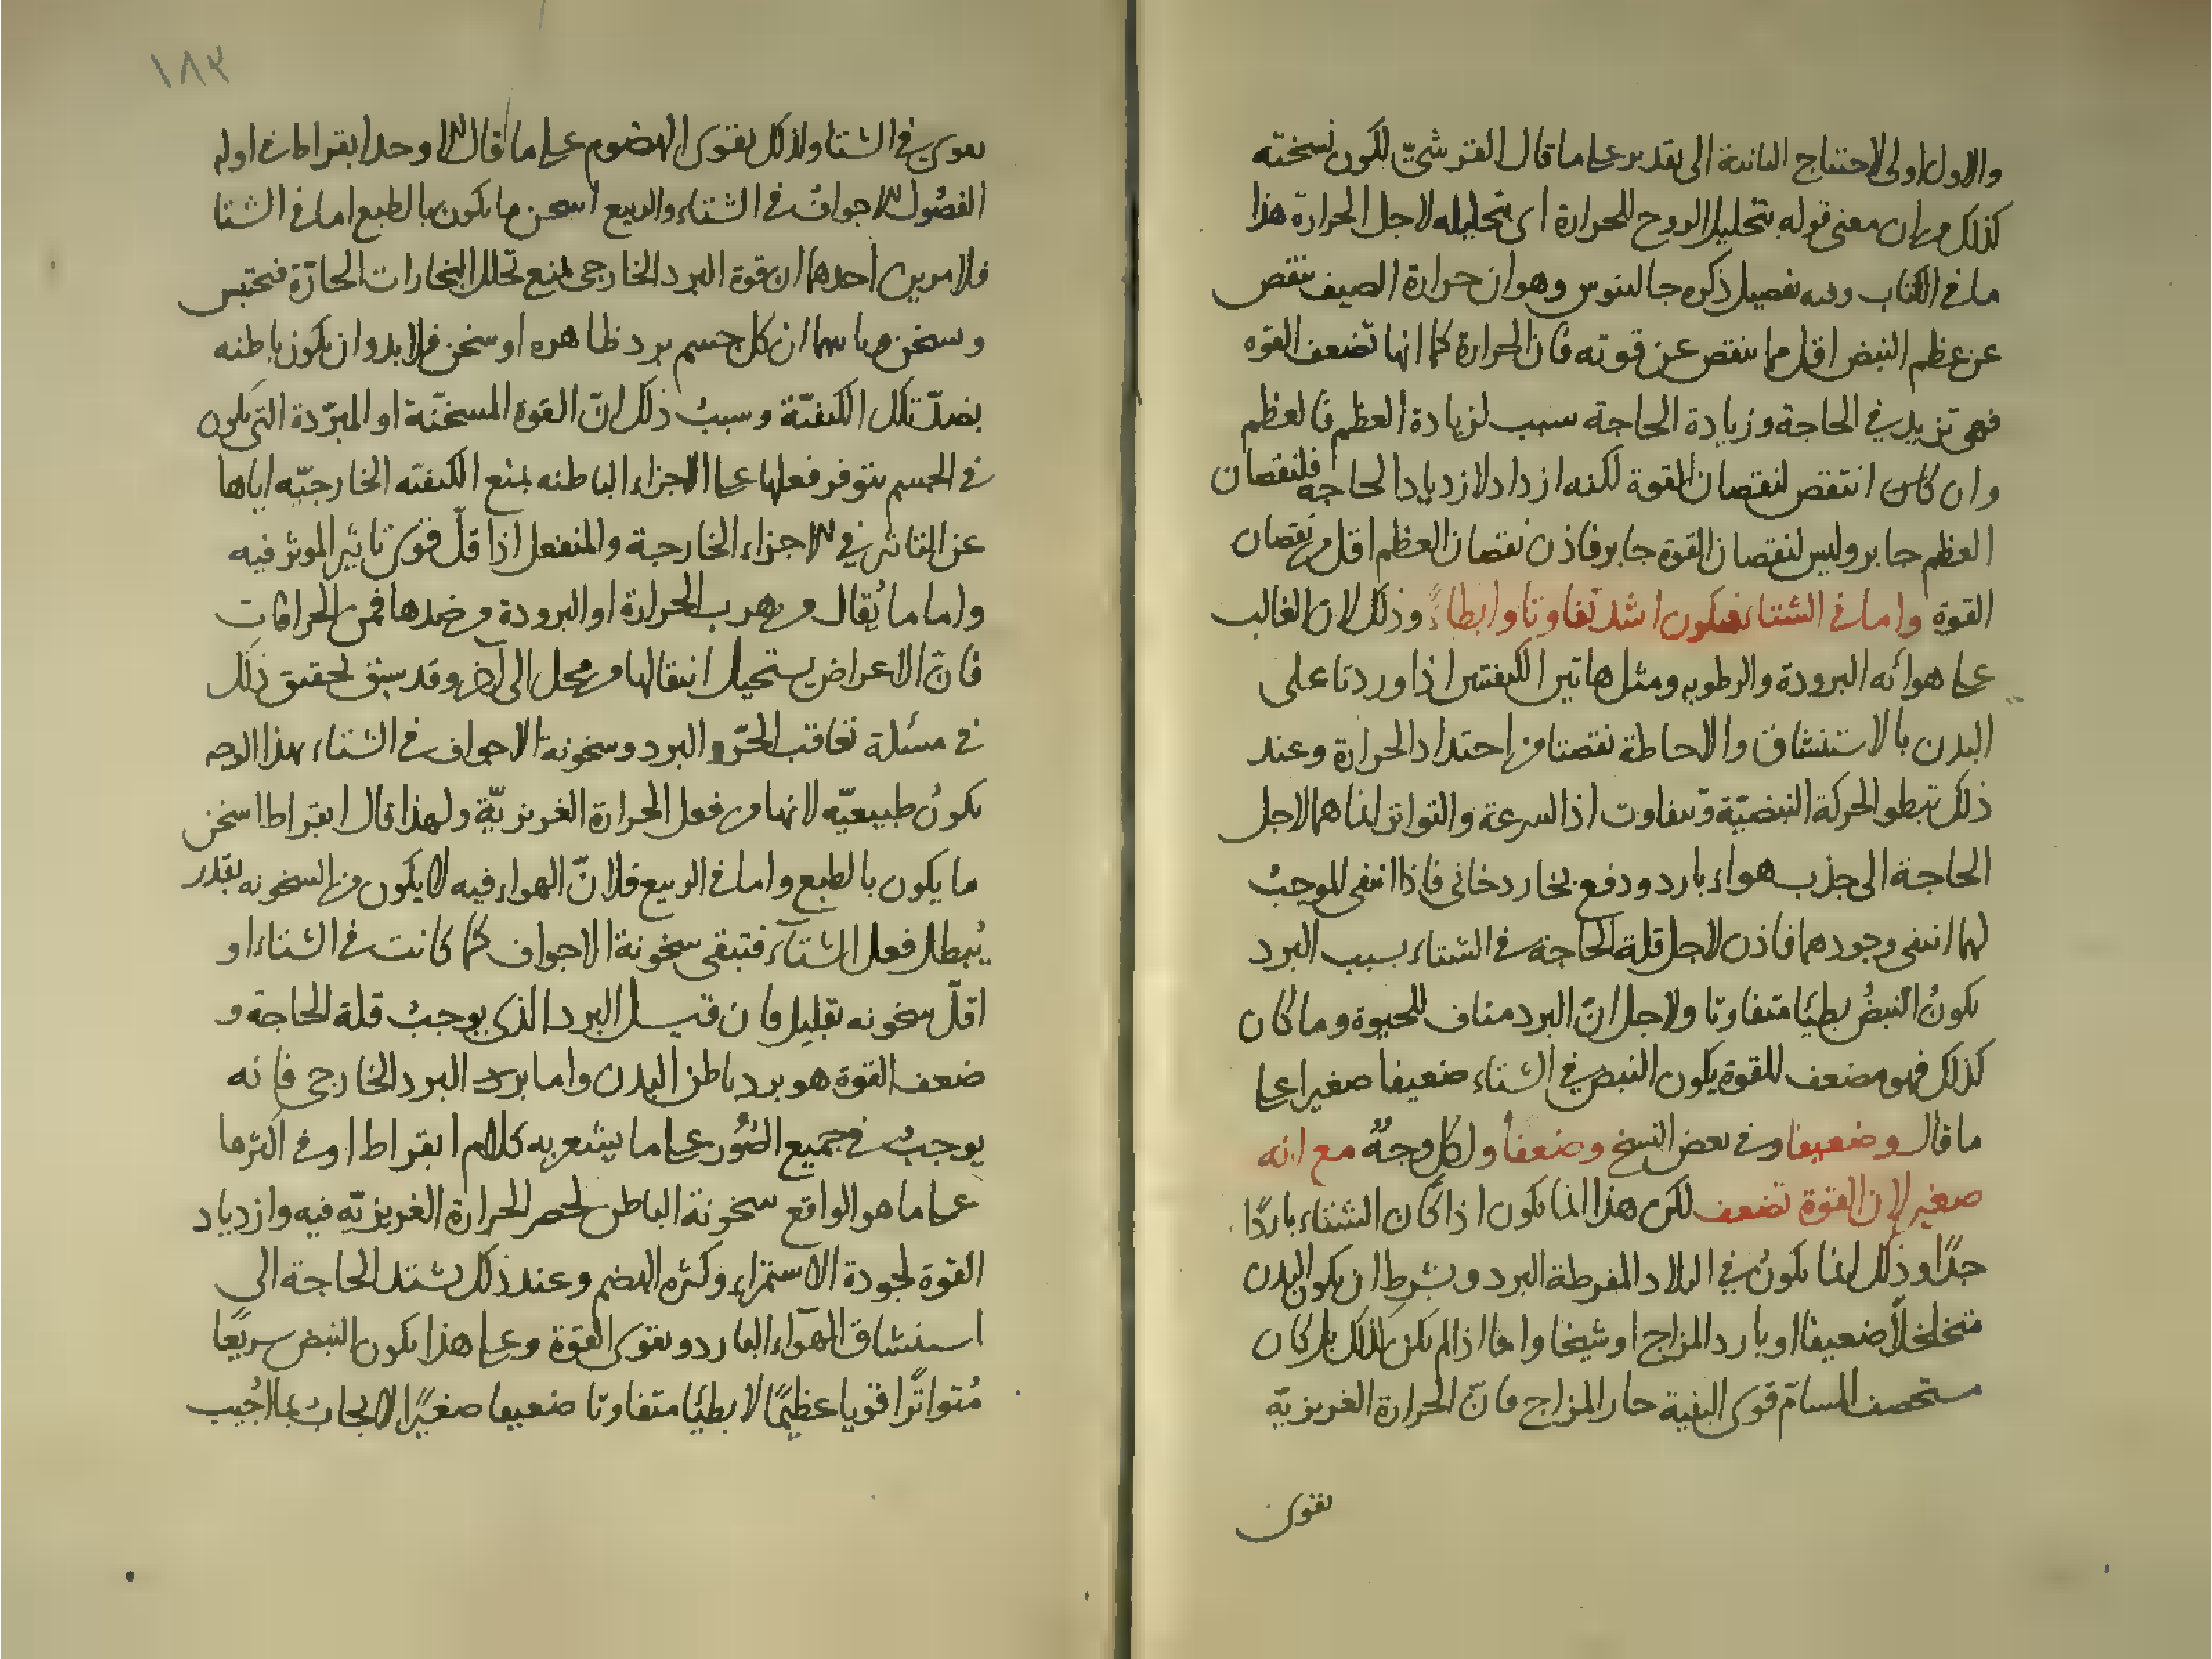 والاول اولى لاحتياج الثانية الى تقدير على ما قال القرشيّ لكون نسخته
كذلك من ان معنى قوله بتحليل الروح للحرارة اى بتحليله لاجل الحرارة هذا
ما فى الكتاب وفيه تفصيل ذكره جالينوس وهو ان حرارة الصيف تنقص
عن عظم النبض اقل مما تنقص عن قوته فان الحرارة كما انها تضعف القوه
فهى تزيد فى الحاجة وزيادة الحاجة سبب لزيادة العظم فالعظم
وان كان انتقص لنقصان القوة لكنه ازداد لازدياد الحاجه فلنقصان
العظم جابر وليس لنقصان القوة جابر فاذن نقصان العظم اقل من نقصان
القوة واما فى الشتاء فيكون اشد تفاوتا وابطاءً وذلك لان الغالب
على هوائه البرودة والرطوبه ومثل هاتين الكيفتين اذا وردتا على
البدن بالاستنشاق والاحاطة نقصتا من احتداد الحرارة وعند
ذلك تبطو الحركة النبضيّة وتتفاوت اذ السرعة والتواتر انما هما لاجل
الحاجة الى جذب هواء بارد ودفع بخار دخانى فاذا انتفى الموجبُ
لهما انتفى وجودهما فاذن لاجل قلة الحاجة فى الشتاء بسبب البرد
يكونُ النبضُ بطيئا متفاوتا ولاجل انّ البرد مناف للحيوة وما كان
كذلك فهو مضعف للقوة يكون النبض فى الشتاء ضعيفا صغيرا على
ما قال وضعيفا وفى بعض النسخ وضعفا ولكل وجهٌ مع انه
صغير لان القوة تضعف لكن هذا انما يكون اذا كان الشتاء باردًا
جدًا وذلك انما يكونُ فى البلاد المفرطة البرد وبشرط ان يكون البدن
متخلخلًا ضعيفا او بارد المزاج او شيخا واما اذا لم يكن كذلك بل كان
مستحصف المسامّ قوى البنية حار المزاج فانّ الحرارة الغريزيّه
تقوى
١٨٣
تقوى فى الشتا ولذلك تقوى الهضوم على ما قال الاوحد ابقراط فى اوله
الفصُول الاجوافُ فى الشتاء والربيع اسخن ما يكون بالطبع اما فى الشتا
فلامرين احدهما ان قوة البرد الخارجى تمنع تحلل البخارات الحارّة فتحتبس
وتسخن وثانيهما ان كل جسم برد ظاهره او سخن فلا بد وان يكون باطنه
بضدّ تلك الكيفيّة وسببُ ذلك انّ القوة المسخّنة او المبرّدة التى تكون
فى الجسم يتوفر فعلها على الاجزاء الباطنه بمنع الكيفته الخارجيّه اياها
عن التاثير فى الاجزاء الخارجية والمنفعل اذا قلّ قوى تاثير الموثر فيه
واما ما يُقال من هرب الحرارة او البرودة من ضدها فمن الخرافات
فانّ الاعراض يستحيل انتقالها من محل الى آخر وقد سبق تحقيق ذلك
فى مسئلة تعاقب الحرّ و البرد وسخونة الاجواف فى الشتاء بهذا الوجه
يكونُ طبيعيّه لانها من فعل الحرارة الغريزيّة ولهذا قال ابقراط اسخن
ما يكون بالطبع واما فى الربيع فلانّ الهواء فيه لا يكون من السخونه بقدر
يُبطل فعل الشتآء فتبقى سخونة الاجواف كما كانت فى الشتاء او
اقلّ سخونه بقليل فان قيل البرد الذى يوجبُ قلة الحاجة و
ضعف القوة هو برد باطن البدن واما برد البرد الخارجى فانه
يوجبُ فى جميع الصُّور على ما يشعر به كلام ابقراط او فى اكثرها
على ما هو الواقع سخونة الباطن لحصر الحرارة الغريزيّه فيه وازدياد
القوة لجودة الاستمراء وكثره الهضم وعند ذلك تشتد الحاجة الى
استنشاق الهوآء البارد وتقوى القوة وعلى هذا يكون النبض سريعًا
مُتواترًا قويا عظيمًا لا بطيئا متفاوتا ضعيفا صغيرًا لايجاب بما اُجيب